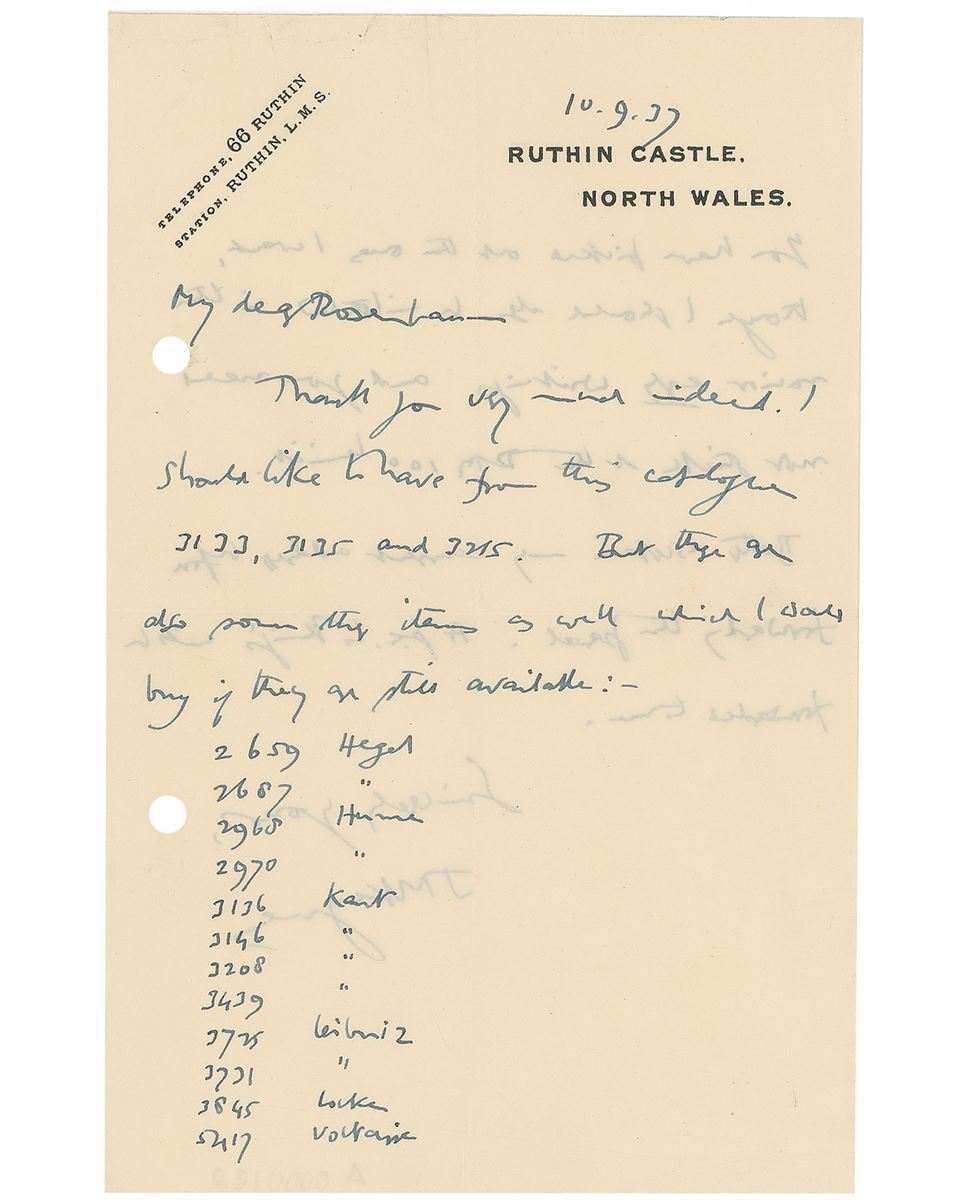 TELEPHONE, 66 RUTHIN
STATION, RUTHIN, L.M.S.
10.9.37
RUTHIN CASTLE,
NORTH WALES.
My dear Rosenbaum
Thank you very much indeed. I
should like to have from this catalogue
3133, 3135 and 3215. But there are
also some other items as well which I would
buy if they are still available:-
2659 Hegel
2687 "
2968 Hume
2970 "
3136 Kant
3146 "
3208 "
3439 "
3725 Leibniz
3731 "
3845 Locke
5417 Voltaire